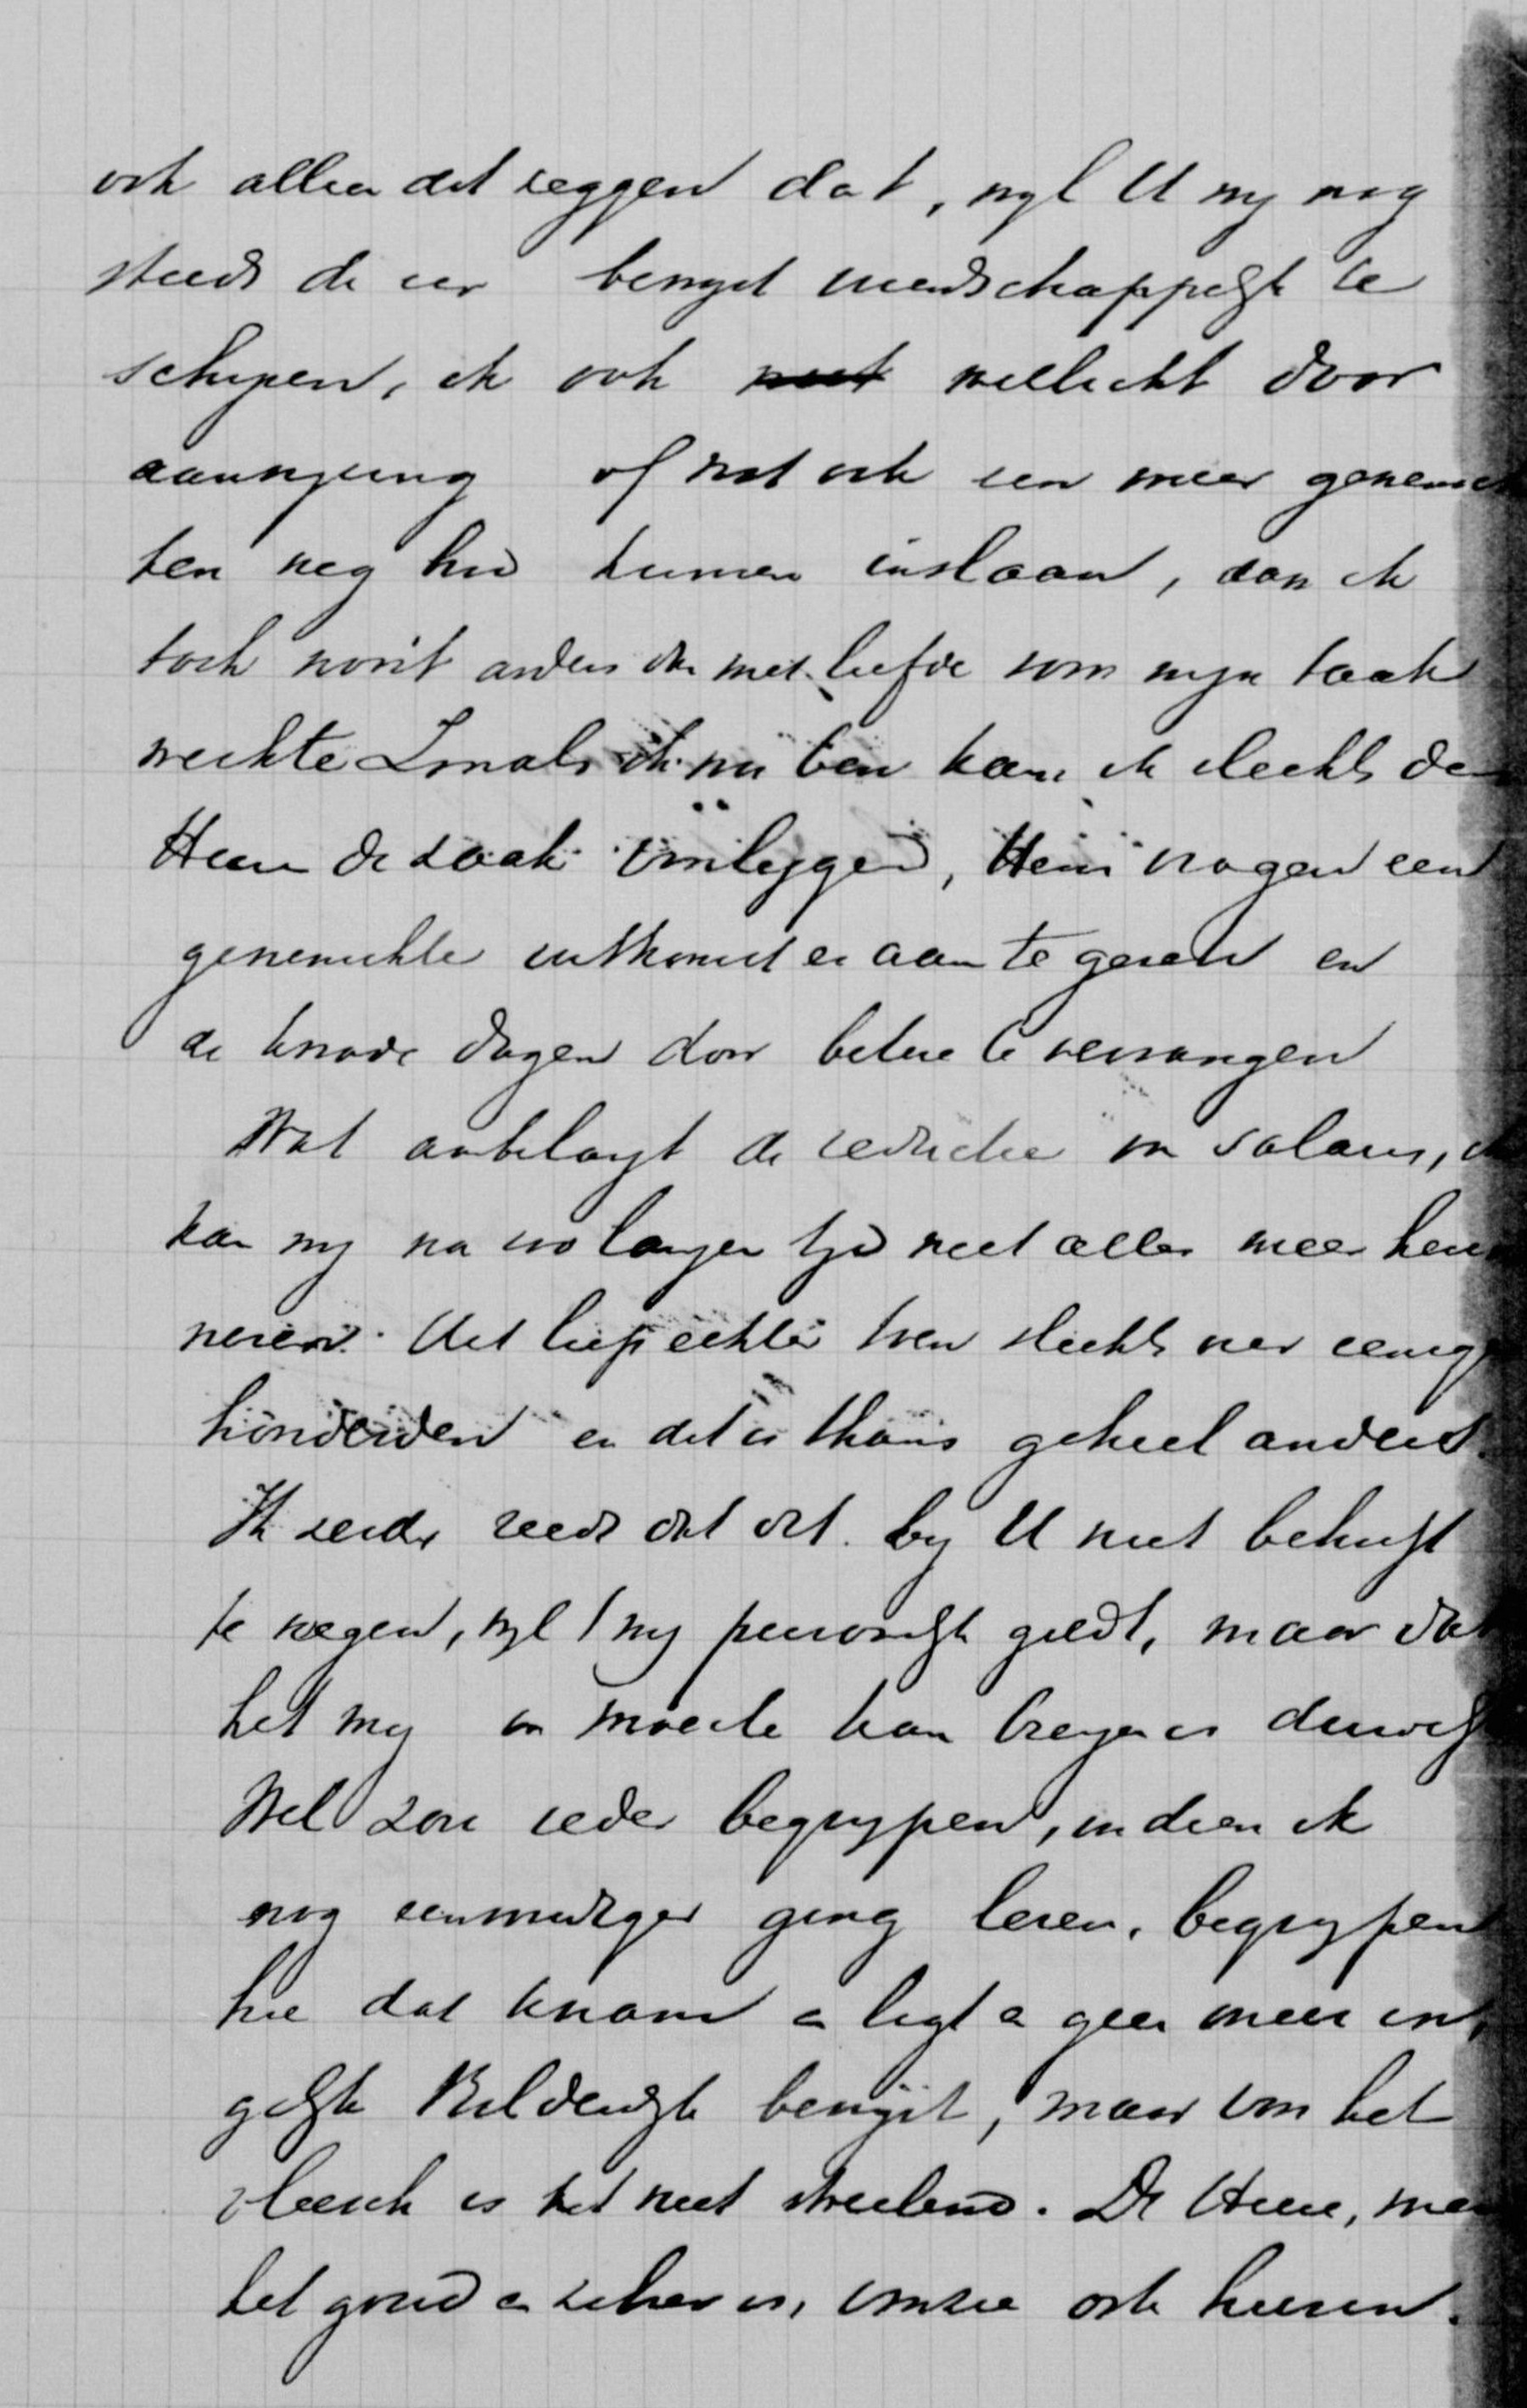 ook alleen dit zeggen dat, wyl U my nog
steeds de eer bewyst vriendschappelyk te
schryven, ik ook niet wellicht door
aanwyzing of wat ook een meer gewensch
ten weg had kunnen inslaan, daar ik
toch nooit anders dan met liefde voor myn taak
werkte Zooals ik nu ben kan ik slechts den
Heer de zaak voorleggen, Hem vragen een
gewenschte uitkomst er aan te geven en
de kwade dagen door betere te vervangen
Wat aanbelangt de reductie van salaris, ik
kan my na zoo langen tyd niet alles meer herin
neren. Het liep echter toen slechts over eenige
honderden en dit is thans geheel anders.
Ik zeide reeds dat dit by U niet behoeft
te wegen, wyl 't my persoonlyk geldt, maar dat
het my in moeite kan brengen is
Wel zou ieder begrypen, indien ik
nog eenvoudiger ging leven, begrypen
hoe dat kwam en ligt er geen meer in,
gelyk Bilderdyk bewyst, maar voor het
vleesch is het niet streelend. De Heere, wiens
het goud en zilver is, voorzie ook hierin.